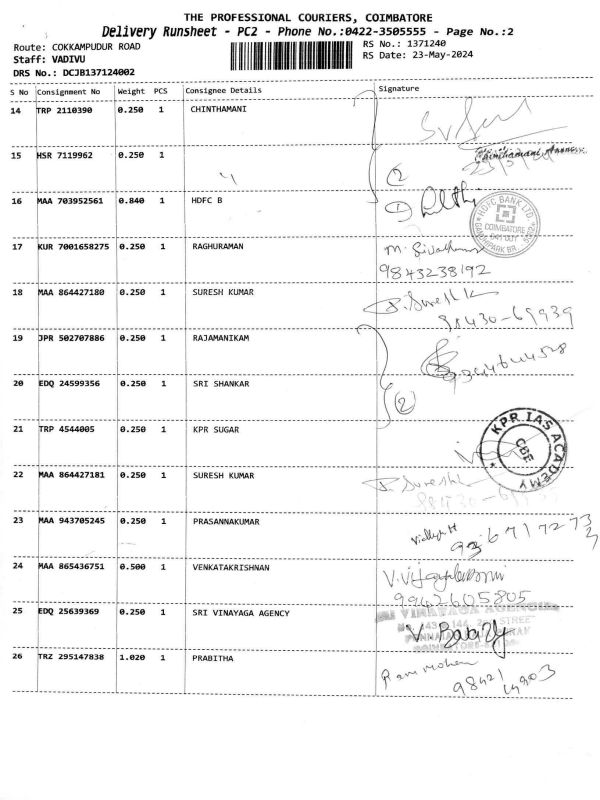 THE PROFESSIONAL COURIERS, COIMBATORE
Delivery Runsheet - PC2 - Phone No.:0422-3505555 - Page No.:2
Route: COKKAMPUDUR ROAD
RS No.: 1371240
Staff: VADIVU
RS Date: 23-May-2024
DRS No.: DCJB137124002
S No Consignment No Weight PCS Consignee Details Signature
14 TRP 2110390 0.250 1 CHINTHAMANI
15 HSR 7119962 0.250 1
Chinthamani
2
16 MAA 703952561 0.840 1 HDFC B
1
HDFC BANK LTD.
COIMBATORE
17 KUR 7001658275 0.250 1 RAGHURAMAN
9843238192
18 MAA 864427180 0.250 1 SURESH KUMAR
98430-69939
19 JPR 502707886 0.250 1 RAJAMANIKAM
20 EDQ 24599356 0.250 1 SRI SHANKAR
2
21 TRP 4544005 0.250 1 KPR SUGAR
KPR IAS ACADEMY
CBE
22 MAA 864427181 0.250 1 SURESH KUMAR
23 MAA 943705245 0.250 1 PRASANNAKUMAR
24 MAA 865436751 0.500 1 VENKATAKRISHNAN
9942605805
25 EDQ 25639369 0.250 1 SRI VINAYAGA AGENCY
26 TRZ 295147838 1.020 1 PRABITHA
Ram Mohan
98421
14903